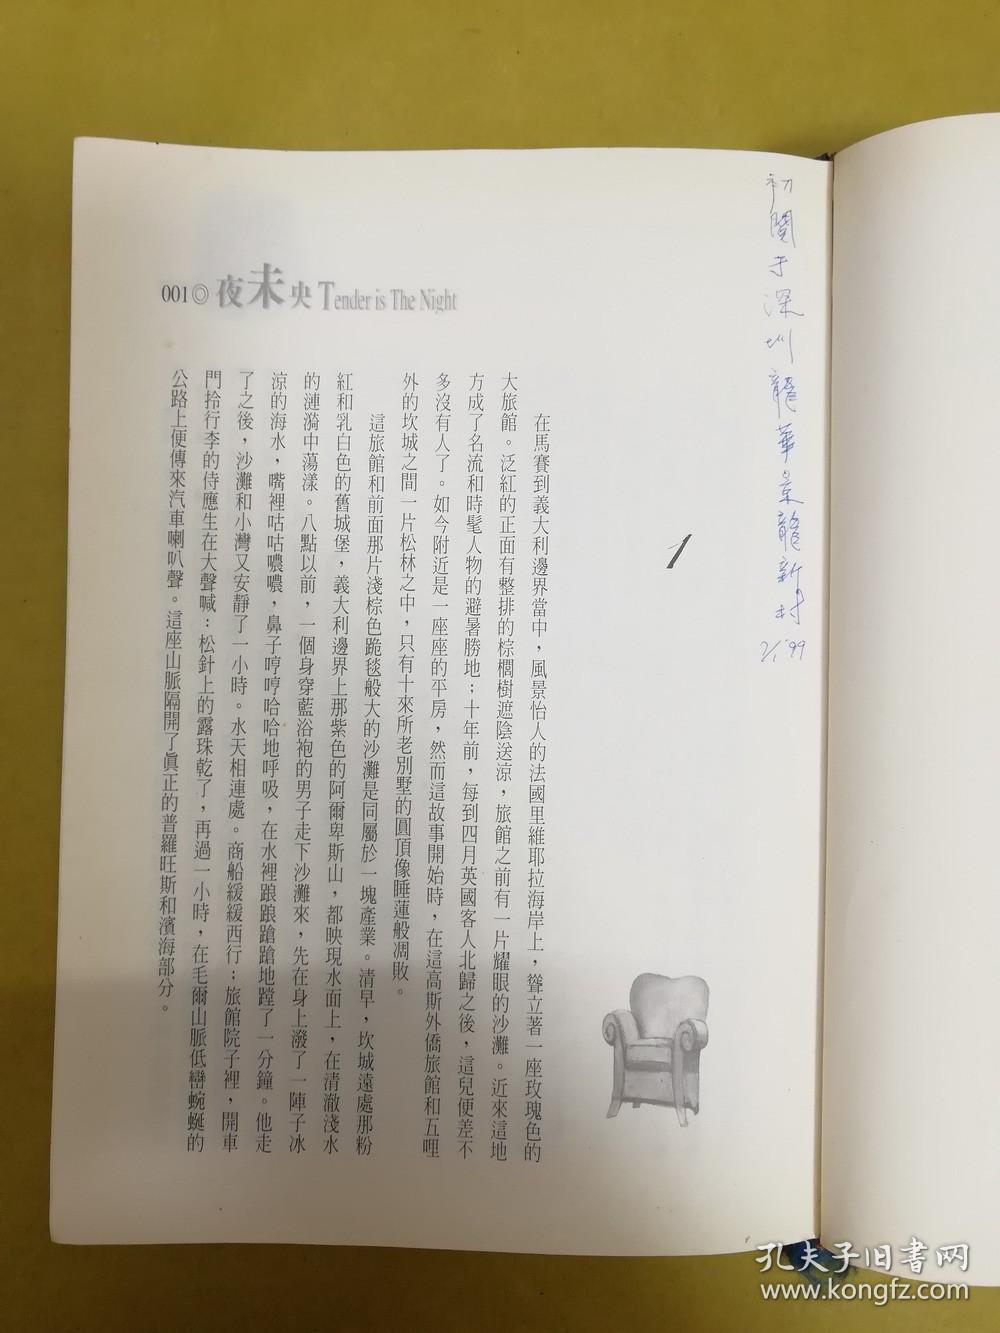 初閱于深圳龍華景龍新村
2/1 '99
001◎夜未央 Tender is The Night
1
在馬賽到義大利邊界當中，風景怡人的法國里維耶拉海岸上，聳立著一座玫瑰色的
大旅館。泛紅的正面有整排的棕櫚樹遮陰送涼，旅館之前有一片耀眼的沙灘。近來這地
方成了名流和時髦人物的避暑勝地；十年前，每到四月英國客人北歸之後，這兒便差不
多沒有人了。如今附近是一座座的平房，然而這故事開始時，在這高斯外僑旅館和五哩
外的坎城之間一片松林之中，只有十來所老別墅的圓頂像睡蓮般凋敗。
這旅館和前面那片淺棕色跪毯般大的沙灘是同屬於一塊產業。清早，坎城遠處那粉
紅和乳白色的舊城堡，義大利邊界上那紫色的阿爾卑斯山，都映現水面上，在清澈淺水
的漣漪中蕩漾。八點以前，一個身穿藍浴袍的男子走下沙灘來，先在身上潑了一陣子冰
涼的海水，嘴裡咕咕噥噥，鼻子哼哼哈哈地呼吸，在水裡踉踉蹌蹌地蹚了一分鐘。他走
了之後，沙灘和小灣又安靜了一小時。水天相連處。商船緩緩西行；旅館院子裡，開車
門拎行李的侍應生在大聲喊：松針上的露珠乾了，再過一小時，在毛爾山脈低巒蜿蜒的
公路上便傳來汽車喇叭聲。這座山脈隔開了真正的普羅旺斯和濱海部分。
孔夫子旧書网
www.kongfz.com